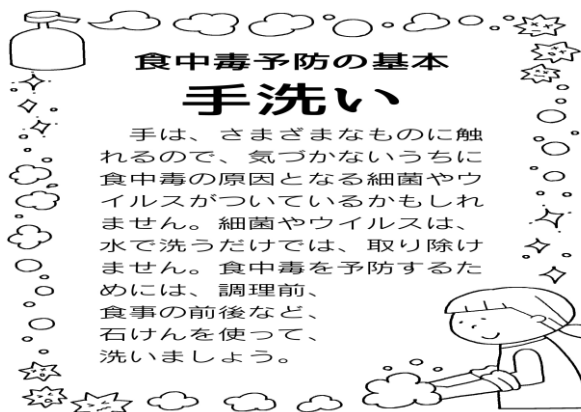 食中毒予防の基本
手洗い
　手は、さまざまなものに触
れるので、気づかないうちに
食中毒の原因となる細菌やウ
イルスがついているかもしれ
ません。細菌やウイルスは、
水で洗うだけでは、取り除け
ません。食中毒を予防するた
めには、調理前、
食事の前後など、
石けんを使って、
洗いましょう。